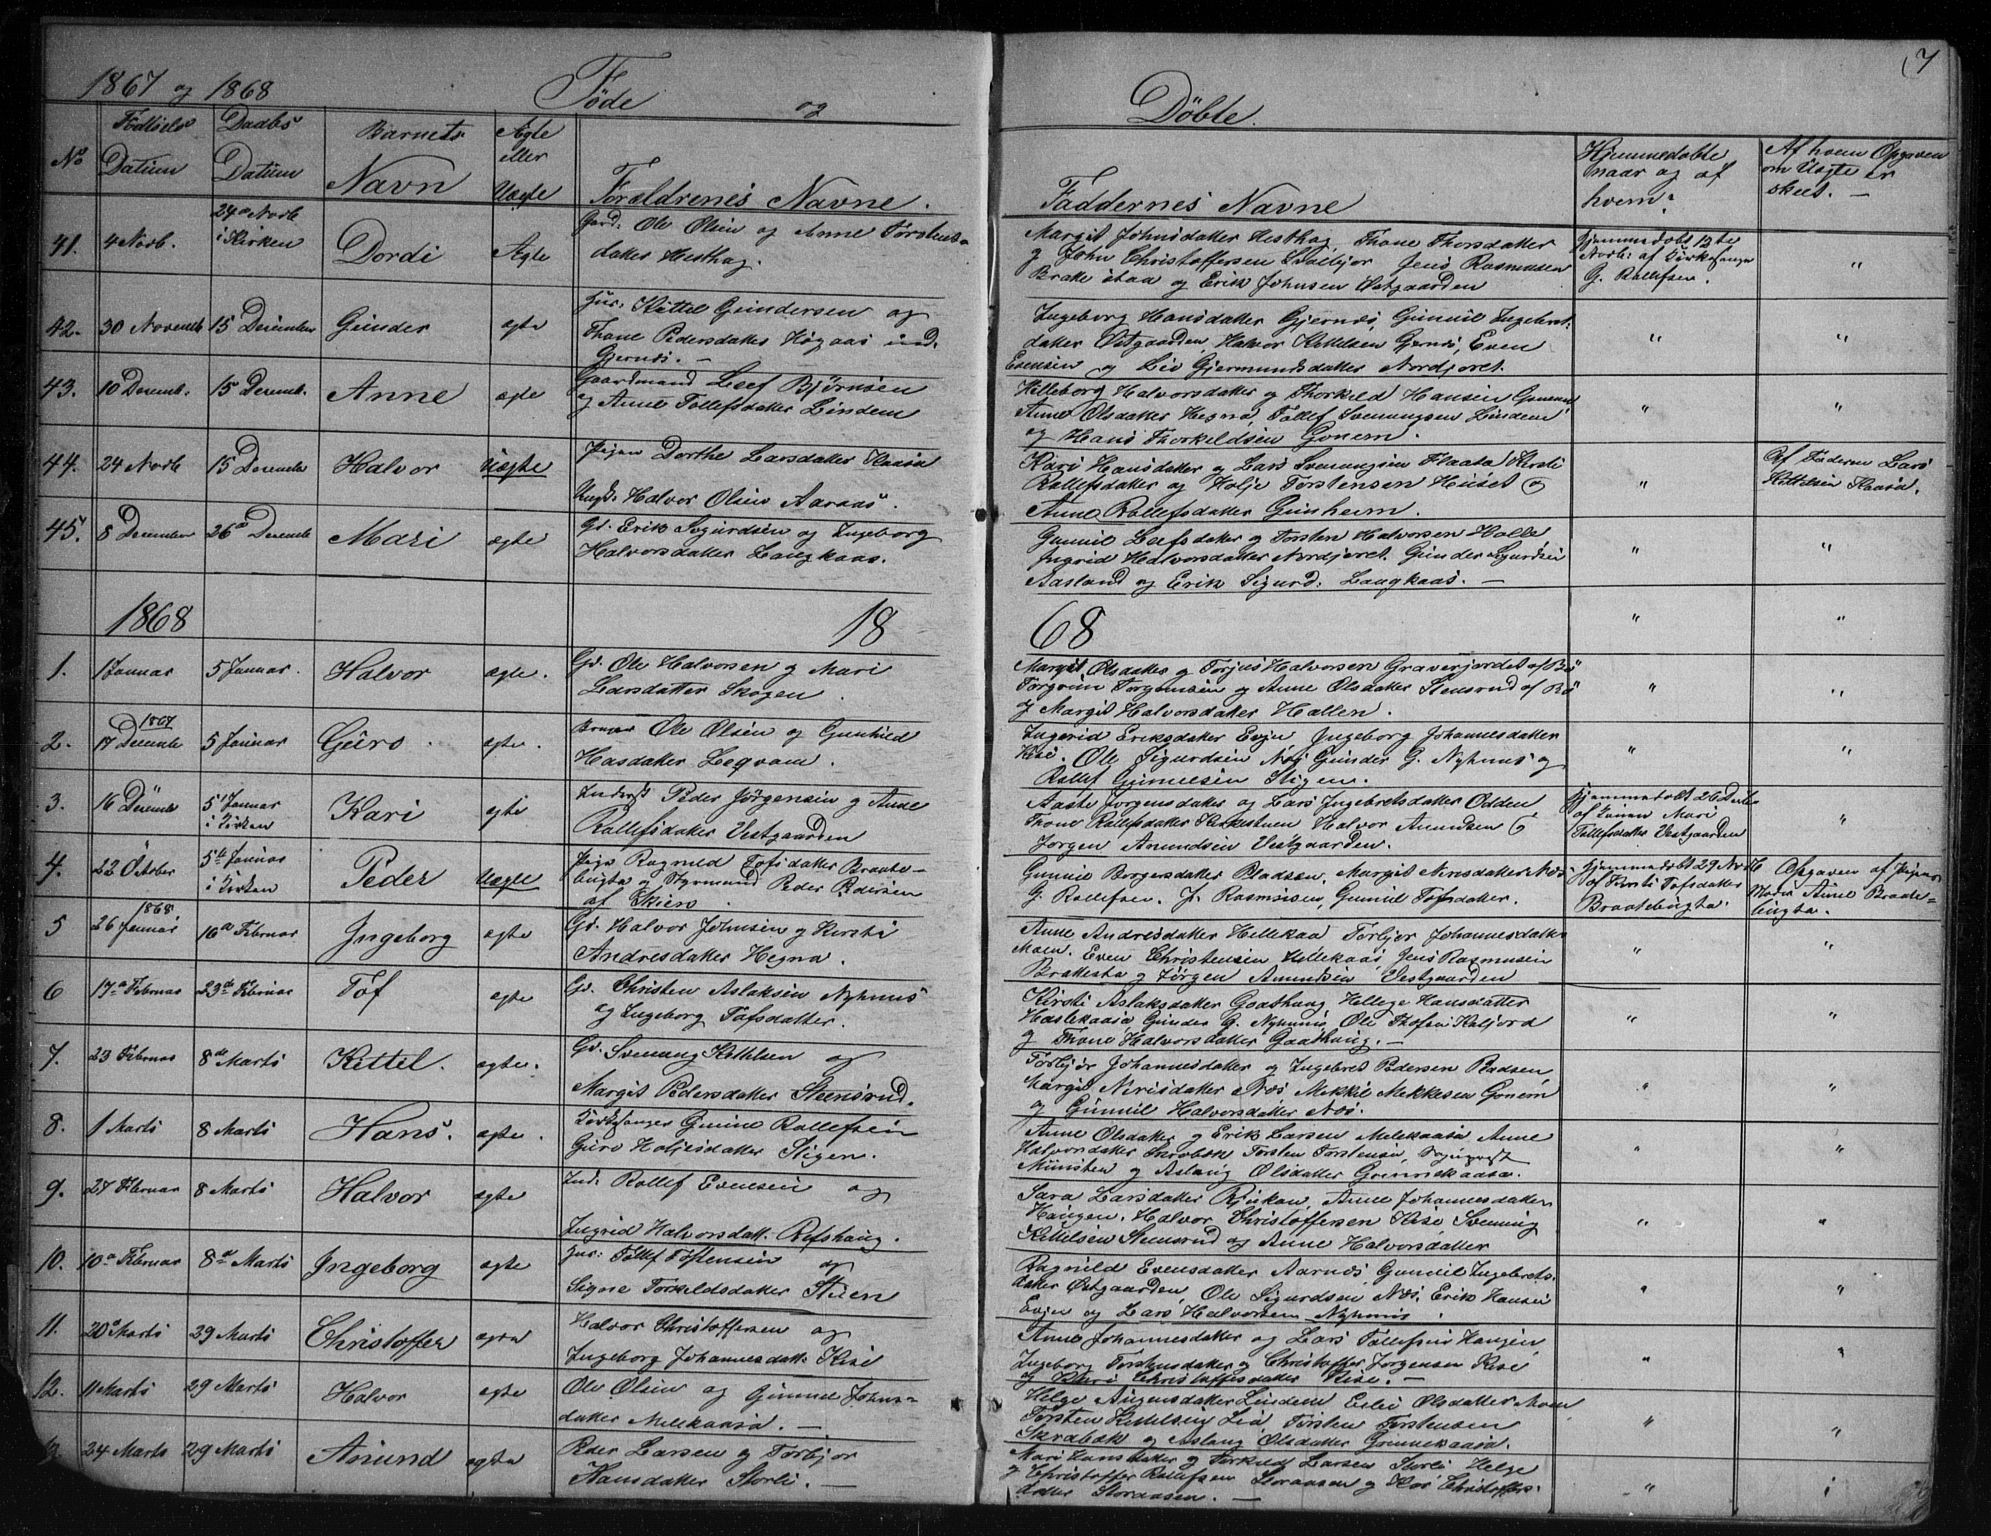 (7
1867 og 1868 Føde og Døbte.
No
Fødsels Datum
Daabs Datum
Barnets Navn
Ægte eller Uægte
Forældrenes Navne.
Faddernes Navne
Hjemmedøbte naar og af hvem?
Af hvem Opgaven om Uægte er skeet. —
41. 4 Novb. 24de Novb i Kirken Dordi Ægte
Gaard. Ole Olsen og Anne Torstens-
datter Hesthag.
Margit Johnsdatter Hesthag, Thone Thorsdatter
g John Christoffersen Svalbjor Jens Rasmussen
Brakestaa og Erik Johnsen Østgaarden
Hjemmedøbt 13te
Novb: af Kirkesanger
G. Rollefsen.
"
42. 30 Novemb 15 December Gunder ægte
Hus: Kittel Gundersen og
Thone Pedersdatter Høgaas ind.
Gjernes. —
Ingeborg Hansdatter Gjernes, Gunnil Ingebret.
datter Østgaarden, Halvor Kittelsen Gjernes, Even
Evensen og Liv Gjermundsdatter Nordjoret.
" "
43. 10 Decemb. 15 Decemb. Anne ægte
Gaardmand Leef Bjørnsen
og Anne Tollefsdatter Lindem
Helleborg Halvorsdatter og Thorkild Hansen Gonem
Anne Olsdatter Hegna, Tollef Svenungsen Lindem
og Hans Thorkildsen Gonem.
" "
44. 24 Novb 15 Decembr Halvor Uægte
Pigen Dorthe Larsdatter Kaasa
Ungk. Halvor Olsen Aaraas.
Kari Hansdatter og Lars Svenungsen Flaata Kirsti
Rollefsdatter og Holje Torstensen Huset og
Anne Rollefsdatter Gunheim.
"
Af Faderen Lars
Kittilsen Kaasa.
45. 8 December 26de Decembr Mari ægte
Gd. Erik Sigurdsen og Ingeborg
Halvorsdatter Langkaas.
Gunnil Leefsdatter og Torsten Halvorsen Holle
Ingrid Halvorsdatter Nordjoret. Gunder Sigurdsen
Aasland og Erik Sigurd: Langkaas. —
" "
1868 18 68
" "
1. 1 Januar 5 Januar. Halvor ægte.
Gd. Ole Halvorsen og Mari
Larsdatter Skogen.
Margit Olsdatter og Torjus Halvorsen Graverjordet af Bø
Torgrim Torgrimsen og Anne Olsdatter Stensrud af Bø
g Margit Halvorsdatter Hallen.
" "
2. 1867 17 Decembr 5 Januar Guro ægte.
Ole Olsen og Gunhild
Hasdatter Leqvam.
Ingerid Eriksdatter Evju, Ingeborg Johannesdatter
Kise. Ole Sigurdsen Næs Gunder G. Nyhuus og
Rollef Gunnulsen Stigen.
" "
3. 16 Decembr 5te Januar i Kirken Kari ægte
Inderst Peder Jørgensen g Anne
Rollefsdatter Vestgaarden
Aaste Jørgensdatter og Lars Ingebretsdatter Odden
Thone Rollefsdatter Kirkestuen Halvor Amundsen og
Jørgen Amundsen Vestgaarden.
Hjemmedøbt 26 Decbr
af Mari
Tollefsdatter Vestgaarden
"
4. 22 October 5te Januar i Kirken Peder Uægte
Pige Ragnild Tofsdatter Braate-
bugta og Peder Pedersen
af Skien.
Gunnil Borgersdatter Badsen, Margit Nirisdatter Næs
G. Rollefsen. J. Rasmusen, Gunnil Tofsdatter.
Hjemmedøbt 29 Novb
af Kirsti Tofsdatter
Braatebugta.
Opgaven af Pigens
Moder Anne Braate-
bugta.
5 1868 26 Januar 16de Februar Ingeborg ægte
Gd. Halvor Johnsen g Kirsti
Andresdatter Hegna.
Anne Andresdatter Hellekaas Torbjør Johannesdatter
Moen. Even Christensen Hellekaas, Jens Rasmusen
Brakesta og Jørgen Amundsen Vestgaarden
" "
6 17de Februar 23de Februar Tof ægte
Gd. Christen Aslaksen Nyhuus
og Ingeborg Tofsdatter.
Kirsti Aslaksdatter Gaathaug Hellege Hansdatter
Haslekaasa Gunder G. Nyhuus, Ole Thofsen Kaljord
og Thone Halvorsdatter Gaathaug. —
" "
7. 23 Februar 8de Marts Kittel. ægte.
Gd. Svenung Kittilsen og
Margit Pedersdatter Steensrud.
Torbjør Johannesdatter og Ingebret Pedersen Badsen
Margit Nirisdatter Næs Mekkil Mekkelsen Gonem
og Gunnil Halvorsdatter Næs.
" "
8. 1 Marts 8 Marts Hans. ægte.
Kirkesanger Gunne Rollefsen
Guro Holjesdatter Stigen.
Anne Olsdatter og Erik Larsen Melekaasa Anne
Halvorsdatter Skrabæk Torsten Torstensen,
Munsten og Aslaug Olsdatter Grinnekaasa.
" "
9. 27 Februar 8 Marts Halvor ægte
Ind. Rollef Evensen og
Ingrid Halvorsdatt. Refshaug.
Sara Larsdatter Rjukan, Anne Johannesdatter
Haugen, Halvor Christoffersen Kise Svenung
Kittilsen Steensrud og Anne Halvorsdatter
" "
10. 10de Februar 8de Marts Ingeborg ægte
Hus: Tollef Tostensen og
Signe Torkildsdatter Stuen
Ragnild Evensdatter Aarnes Gunnil Ingebrets-
datter Østgaarden, Ole Sigurdsen Næs, Erik Hansen
Evju og Lars Halvorsen Nyhuus.
" "
11. 20de Marts 29 Marts Christoffer ægte
Halvor Christoffersen og
Ingeborg Johannesdatt. Kise
Anne Johannesdatter og Lars Tollefsen Haugen
Ingeborg Torstensdatter og Christoffer Jørgensen Kise
og Christoffersdatter Kise. —
" "
12. 11 Marts 29 Marts Halvor ægte
Ole Olsen og Gunnil Johns-
datter Melekaasa. —
Helge Augensdatter Lindem Eslie Olsdatter Moen
Torsten Kittilsen Lia Torsten Torstensen
Skrabæk og Aslaug Olsdatter Grinnekaasa.
" "
13. 24 Marts 29 Marts Amund ægte
Peder Larsen og Torbjør
Hansdatter Storli. —
Mari Hansdatter og Torkild Larsen Storli Helge
g Christoffer Rollefsen Storaasen og Christoffers-
datter Storaasen. —
"